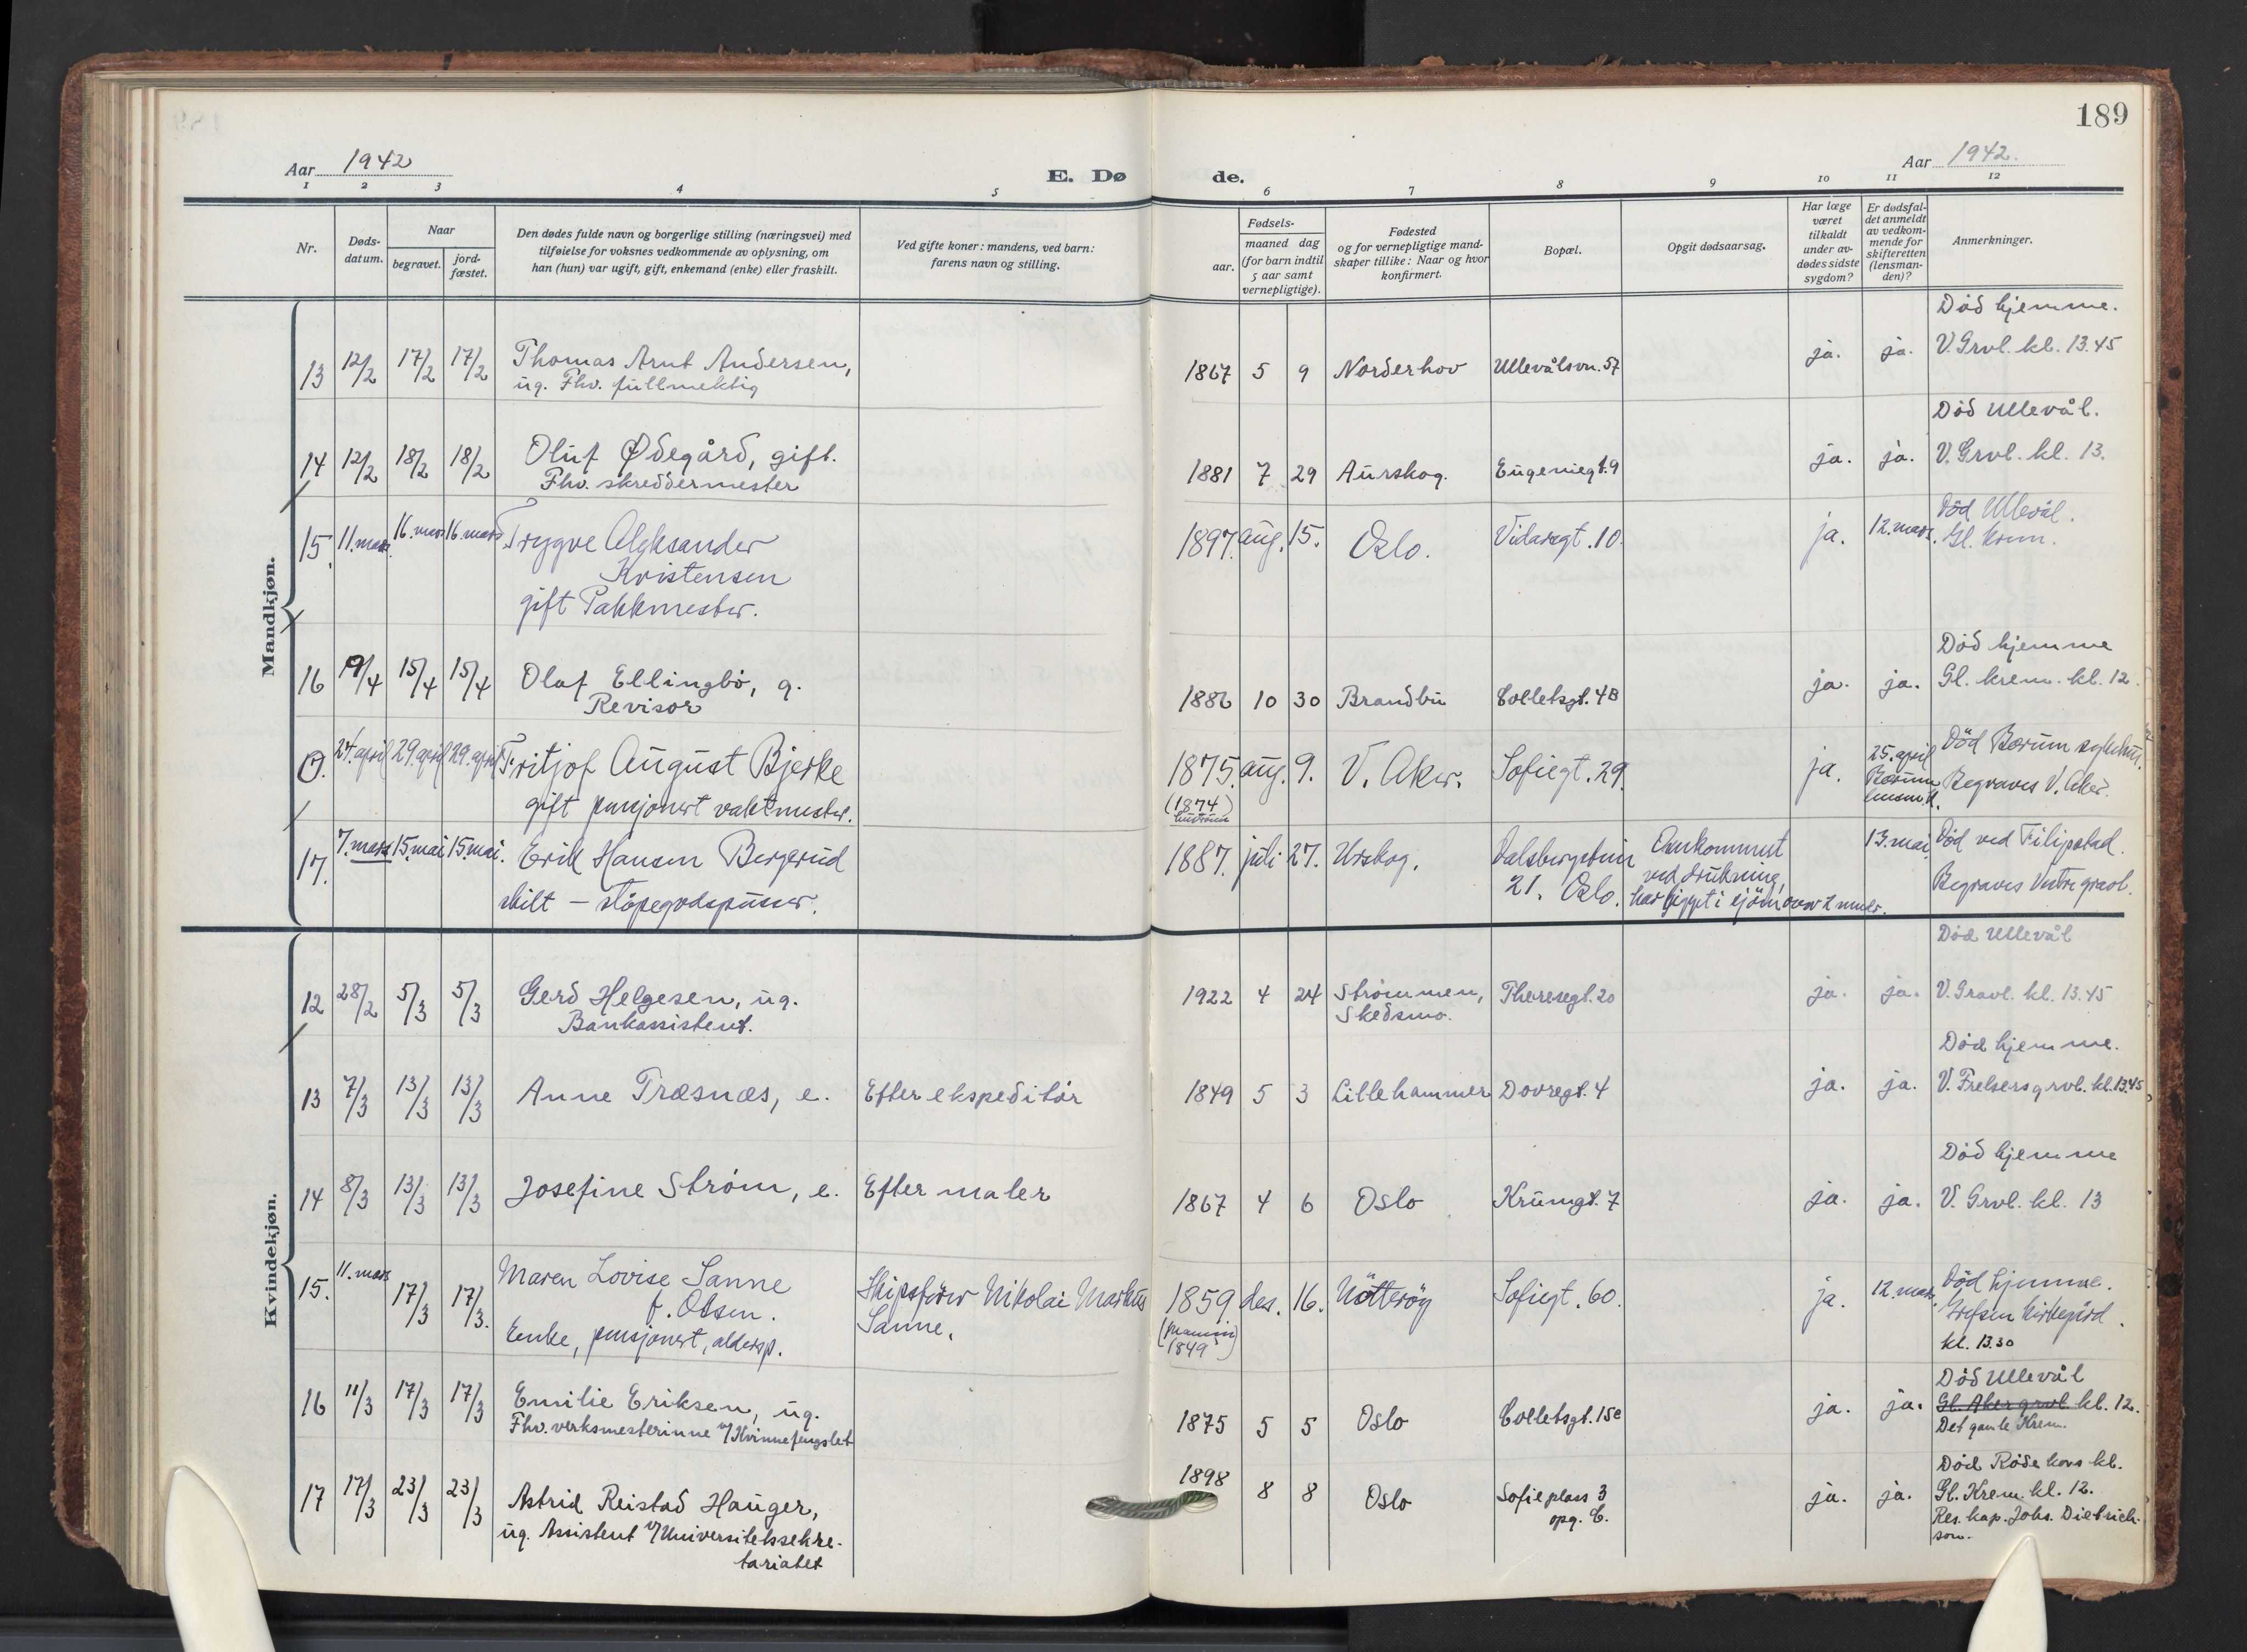 189
Aar 1942
E. Dø de.
Aar 1942.
1 2 3 4 5 6 7 8 9 10 11 12
Nr.
Døds-
datum.
Naar
begravet.
jord-
fæstet.
Den dødes fulde navn og borgerlige stilling (næringsvei) med
tilføielse for voksnes vedkommende av oplysning, om
han (hun) var ugift, gift, enkemand (enke) eller fraskilt.
Ved gifte koner: mandens, ved barn:
farens navn og stilling.
Fødsels-
aar.
maaned dag
(for barn indtil
5 aar samt
vernepligtige).
Fødested
og for vernepligtige mand-
skaper tillike: Naar og hvor
konfirmert.
Bopæl.
Opgit dødsaarsag.
Har læge
været
tilkaldt
under av-
dødes sidste
sygdom?
Er dødsfal-
det anmeldt
av vedkom-
mende for
skifteretten
(lensman-
den)?
Anmerkninger.
Mandkjøn.
13 12/2 17/2 17/2 Thomas Arnt Andersen,
ug. Fhv. fullmektig
1867 5 9 Norderhov Ullevålsvn. 57 ja. ja.
Död hjemme.
V. Grvl. kl. 13.45
14 12/2 18/2 18/2 Oluf Ødegård, gift.
Fhv. skreddermester
1881 7 29 Aurskog. Eugeniegt. 9 ja. ja.
Död Ullevål.
V. Grvl. kl. 13.
15. 11. mars. 16. mars 16. mars Trygve Aleksander
Kristensen
gift Pakkmester.
1897. aug. 15. Oslo. Vidarsgt. 10. ja. 12. mars.
Död Ullevål.
Gl. krem.
16 9/4 15/4 15/4 Olaf Ellingbö, g.
Revisor
1886 10 30 Brandbu Colletsgt. 4B ja. ja.
Död hjemme
Gl. krem. kl. 12.
0. 24. april 29. april 29. april Fritjof August Bjerke
gift pensjonert vaktmester.
1875. aug. 9. V. Aker. Sofiegt. 29. ja.
(1874)
25. april
Bærum
lensm.k.
Död Bærum sykehus.
Begraves V. Aker.
17. 7. mars 15. mai 15. mai. Erik Hansen Bergerud
skilt – støpegodspusser.
1887. juli 27. Urskog. Dalsbergstien
21. Oslo.
Omkommet
ved drukning,
har ligget i sjöen over 2 mndr.
13. mai.
Död ved Filipstad.
Begraves Vestre gravl.
Kvindekjøn.
12 28/2 5/3 5/3 Gerd Helgesen, ug.
Bankassistent.
1922 4 24 Strömmen,
Skedsmo.
Theresegt. 20 ja. ja.
Död Ullevål
V. Gravl. kl. 13.45
13 7/3 13/3 13/3 Anne Træsnæs, e. Efter ekspeditör
1849 5 3 Lillehammer Dovregt. 4 ja. ja.
Död hjemme.
V. Frelsers grvl. kl. 13.45
14 8/3 13/3 13/3 Josefine Ström, e. Efter maler
1867 4 6 Oslo Krumgt. 7 ja. ja.
Död hjemme
V. Grvl. kl. 13
15. 11. mars 17/3 17/3. Maren Lovise Sanne
f. Olsen.
Enke, pensjonert, aldersp.
Skipsförer Nikolai Markus
Sanne.
1859 des. 16. Nötteröy Sofiegt. 60. ja. 12. mars.
1849
Död hjemme.
Grefsen kirkegård.
kl. 13.30
16 11/3 17/3 17/3 Emilie Eriksen, ug.
Fhv. verksmesterinne v/Kvinnefengslet
1875 5 5 Oslo Colletsgt. 15c ja. ja.
Död Ullevål
Gl. Aker grvl. kl. 12.
Det gamle Krem.
17 17/3 23/3 23/3 Astrid Reistad Hauger,
ug. Assistent v/Universitetssekre-
tariatet
1898 8 8 Oslo Sofie plass 3
opg. C.
ja. ja.
Död Röde kors kl.
Gl. Krem. kl. 12.
Res. kap. Johs. Dietrich-
son.